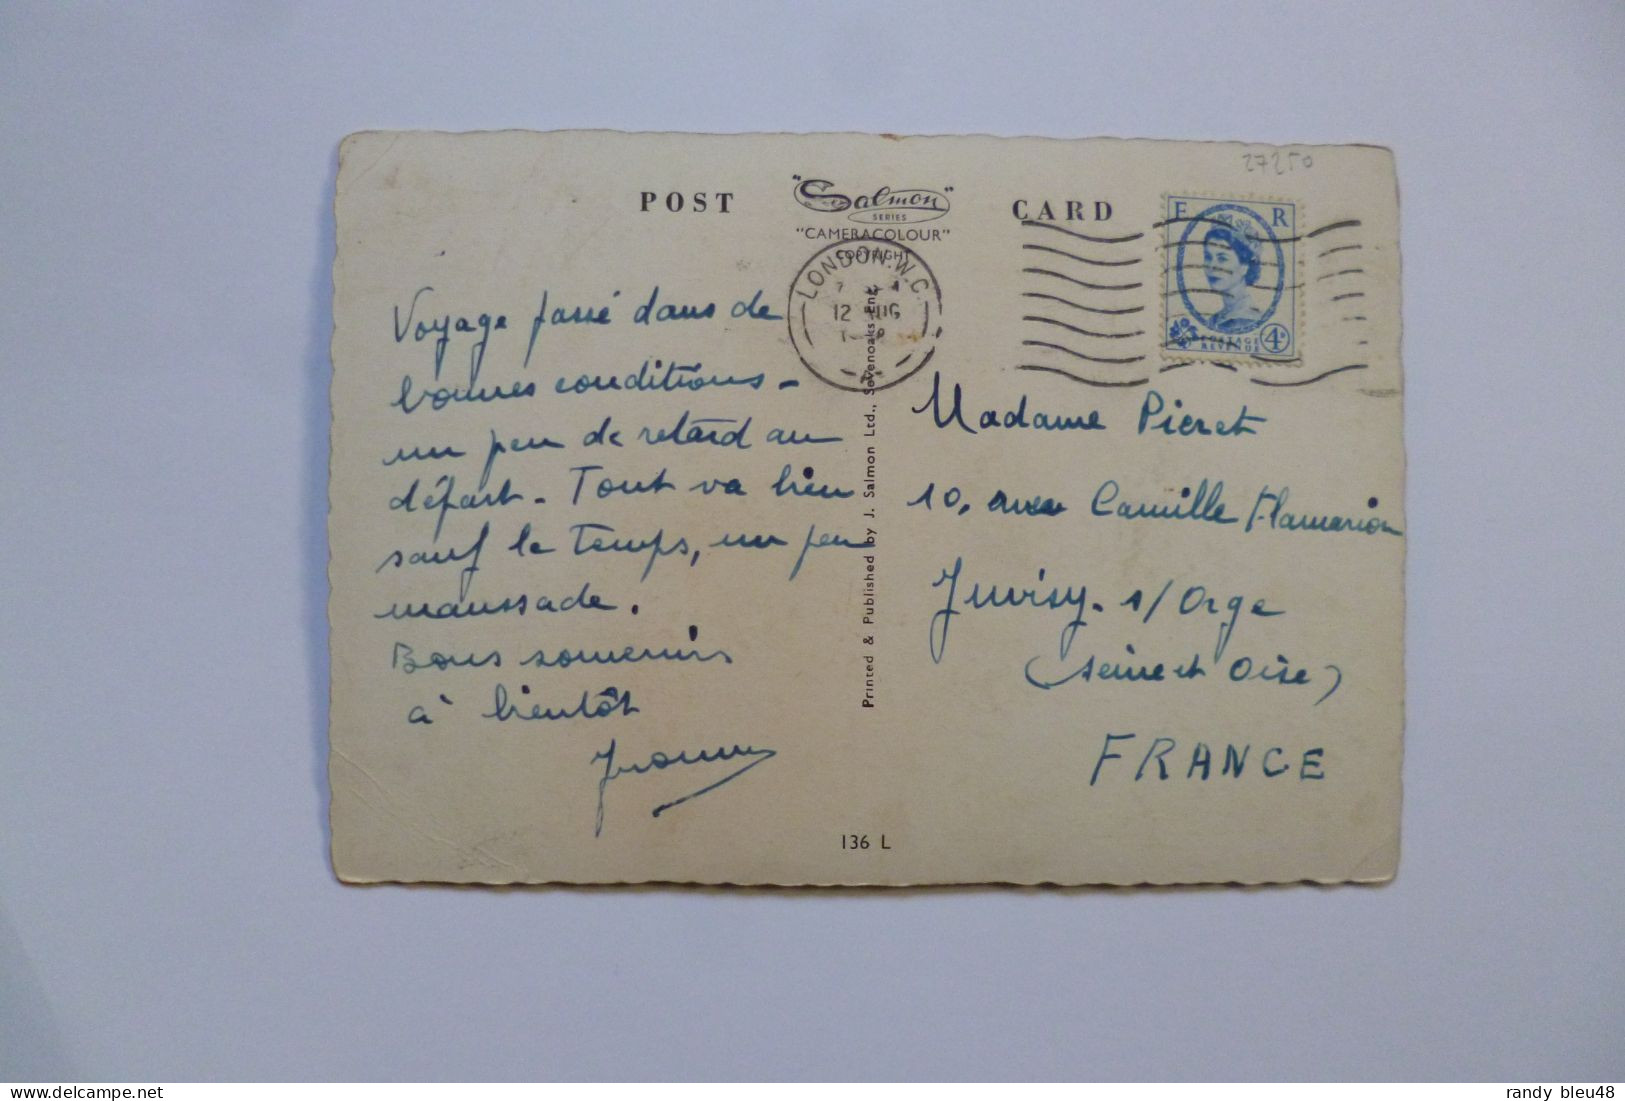 27250
POST CARD
"Salmon"
SERIES
"CAMERACOLOUR"
COPYRIGHT
LONDON.W.C.
12 AUG
E R
POSTAGE
REVENUE
4D
Voyage passé dans de
bonnes conditions -
un peu de retard au
départ - Tout va bien
sauf le temps, un peu
maussade.
Bons souvenirs
à bientôt
Printed & Published by J. Salmon Ltd., Sevenoaks. Eng.
Madame Pieret
10, avenue Camille Flamarion
Juvisy. s/Orge
(Seine et Oise)
FRANCE
136 L
randy bleu48